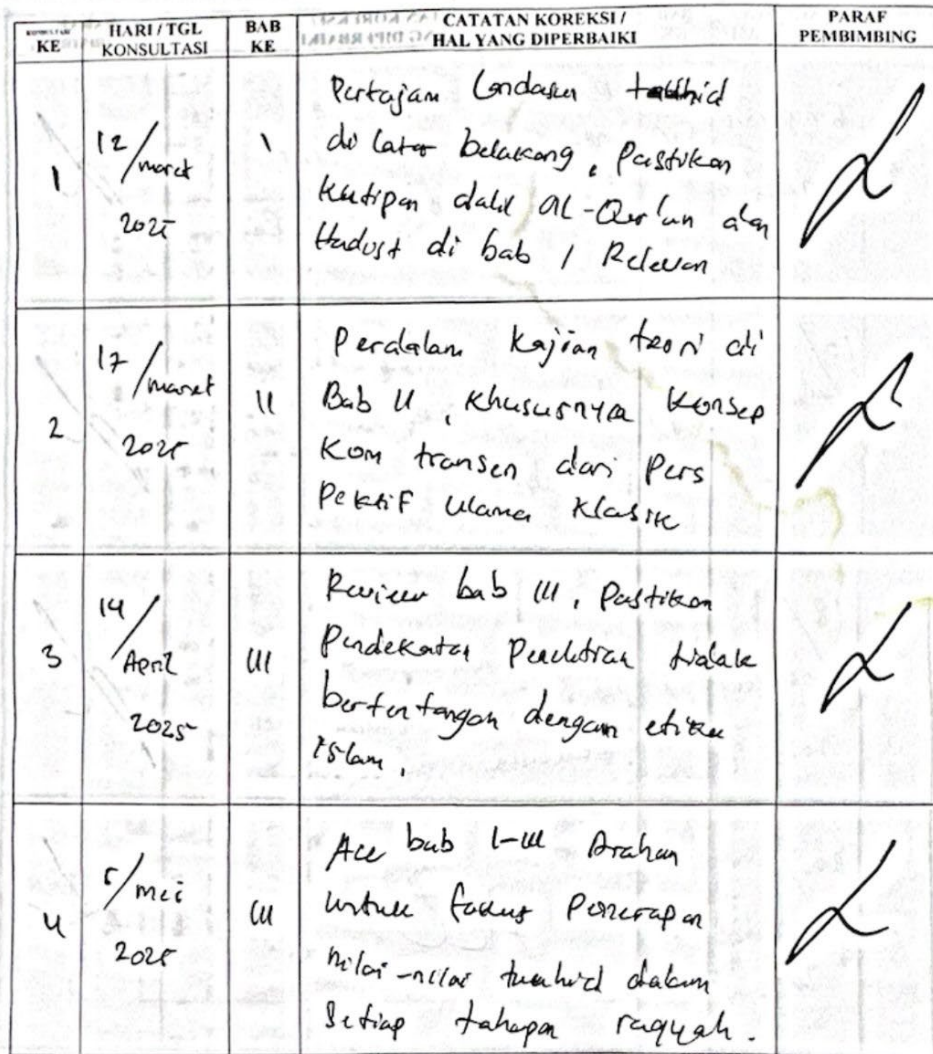 KE HARI / TGL KONSULTASI BAB KE CATATAN KOREKSI / HAL YANG DIPERBAIKI PARAF PEMBIMBING
1 12/maret 2025 1
Pertajam landasan tauhid
di latar belakang, pastikan
kutipan dalil Al-Qur'an dan
Hadist di bab 1 Relevan
2 17/maret 2025 II
Perdalam kajian teori di
Bab II, khususnya konsep
Kom transen dari Pers
pektif ulama klasik
3 14/April 2025 III
Review bab III, Pastikan
pendekatan Penelitian tidak
bertentangan dengan etika
islam.
4 5/mei 2025 III
Acc bab I-III Arahan
untuk fokus Penerapan
nilai-nilai tauhid dalam
Setiap tahapan ruqyah.